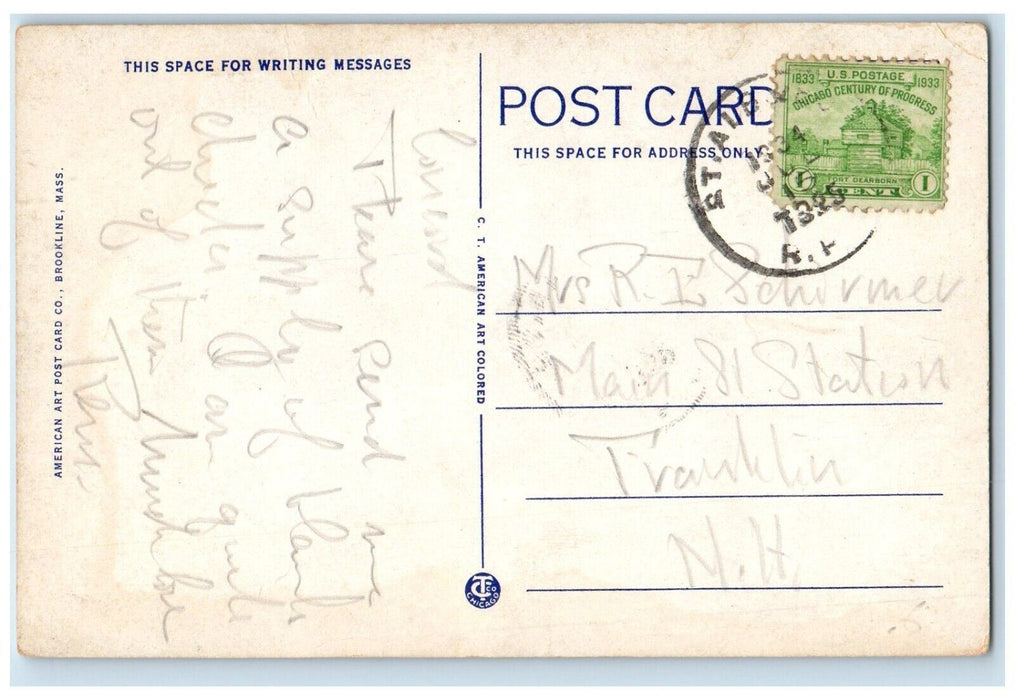 THIS SPACE FOR WRITING MESSAGES
POST CARD
THIS SPACE FOR ADDRESS ONLY
1833 U.S. POSTAGE 1933
CHICAGO CENTURY OF PROGRESS
FORT DEARBORN
1 CENT 1
Concord
Please send me
a supply of blank
checks. I am quite
out of them
Mrs R. E. Schirmer
Main St Station
Franklin
N.H.
C. T. AMERICAN ART COLORED
CTCO CHICAGO
AMERICAN ART POST CARD CO., BROOKLINE, MASS.